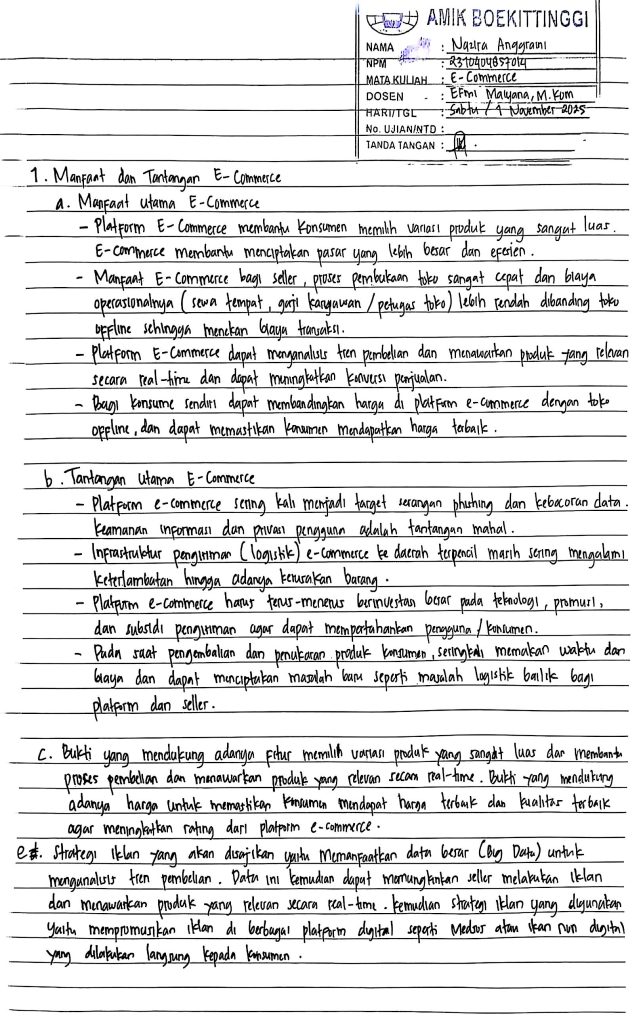 AMIK BOEKITTINGGI
NAMA : Nazira Anggraini
NPM : 2310404857014
MATA KULIAH : E-Commerce
DOSEN : EFmi Malyana, M.Kom
HARI/TGL : Sabtu / 1 November 2025
No. UJIAN/NTD :
TANDA TANGAN :
1. Manfaat dan Tantangan E-Commerce
a. Manfaat utama E-Commerce
- Platform E-Commerce membantu konsumen memilih variasi produk yang sangat luas.
E-commerce membantu menciptakan pasar yang lebih besar dan efesien.
- Manfaat E-Commerce bagi seller, proses pembukaan toko sangat cepat dan biaya
operasionalnya (sewa tempat, gaji karyawan / petugas toko) lebih rendah dibanding toko
offline sehingga menekan biaya transaksi.
- Platform E-Commerce dapat menganalisis tren pembelian dan menawarkan produk yang relevan
secara real-time dan dapat meningkatkan konversi penjualan.
- Bagi konsume sendiri dapat membandingkan harga di platform e-commerce dengan toko
offline, dan dapat memastikan konsumen mendapatkan harga terbaik.
b. Tantangan utama E-Commerce
- Platform e-commerce sering kali menjadi target serangan phishing dan kebacoran data.
Keamanan informasi dan privasi pengguna adalah tantangan mahal.
- Infrastruktur pengiriman (logistik) e-commerce ke daerah terpencil masih sering mengalami
keterlambatan hingga adanya kerusakan barang.
- Platform e-commerce harus terus-menerus berinvestasi besar pada teknologi, promosi,
dan subsidi pengiriman agar dapat mempertahankan pengguna / konsumen.
- Pada saat pengembalian dan penukaran produk konsumen, seringkali memakan waktu dan
biaya dan dapat menciptakan masalah baru seperti masalah logistik bailik bagi
platform dan seller.
c. Bukti yang mendukung adanya fitur memilih variasi produk yang sangat luas dan membantu
proses pembelian dan menawarkan produk yang relevan secara real-time. Bukti yang mendukung
adanya harga untuk memastikan konsumen mendapat harga terbaik dan kualitas terbaik
agar meningkatkan rating dari platform e-commerce.
e. Strategi iklan yang akan disajikan yaitu Memanfaatkan data besar (Big Data) untuk
menganalisis tren pembelian. Data ini kemudian dapat memungkinkan seller melakukan iklan
dan menawarkan produk yang relevan secara real-time. Kemudian strategi iklan yang digunakan
yaitu mempromosikan iklan di berbagai platform digital seperti Medsos atau ikan non digital
yang dilakukan langsung kepada konsumen.